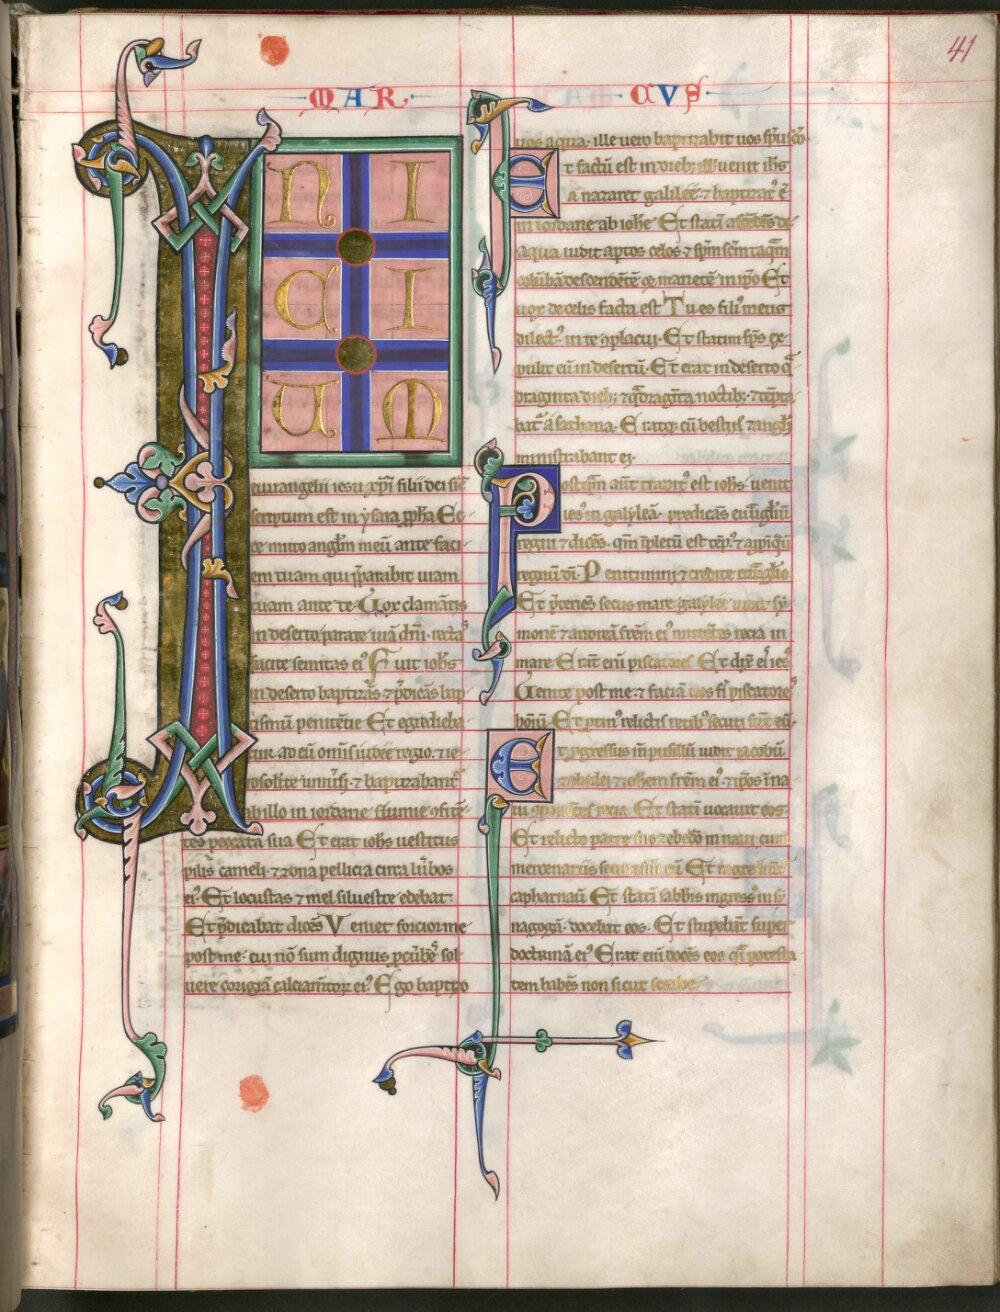 41
MAR CVS
I
NI
CI
UM
euuangelii iesu xpi filii dei sic
scriptum est in ysaia ppha Ec
ce mitto anglm meu ante faci
em tuam qui pparabit uiam
tuam ante te. Uox clamatis
in deserto parate uia dni. rectas
facite semitas ei. Fuit iohs
in deserto baptizas & pdicas bap
tismu penitetie Et egredieba
tur ad eu omis iudee regio. & ie
rosolite uniusi & baptizabant
abillo in iordane flumie ofite
tes peccata sua Et erat iohs uestitus
pilis cameli. & zona pellicia circa lubos
ei. Et locustas & mel siluestre edebat.
Et pdicabat dices Veniet forcior me
post me. cui no sum dignus pcube sol
uere corigia calciamtorz ei. Ego baptizo
uos aqua. ille uero baptizabit uos spu sco
Et factu est in dieb; uenit ihs
a nazaret galilee. & baptizat e
in iordane ab iohe Et stati ascedes de
aqua uidit aptos celos. & spm scm taqm
coluba descendete & manete in ipo Et
uox de celis facta est Tu es filius meus
dilect. in te oplacui. Et statim sps ex
pulit eu in desertu. Et erat in deserto q
draginta dieb; & qdraginta noctib; & tepta
bat a sathana. Eratq; cu bestiis & angli
ministrabant ei.
Postqm aut tradit est iohs uenit
ies in galylea. predicas euuglium
regni & dices. qm ipletu est tep. & appiqu
regnu di. Penitimini & credite euuglio
Et pteries secus mare galylee uidit sy
mone & andrea frem ei mittetes recia in
mare Erat eni piscatores Et dix eis ies
Uenite post me. & facia uos fi piscatores
homiu. Et ptin relictis retib secuti sut eu.
Et pgressus in pusillu uidit iacobu
zebedei & iohem frem ei. & ipos i na
ui oponetes recia. Et stati uocauit eos.
Et relicto patre suo zebedeo in naui cum
mercenariis secuti st eu Et ingrediut
capharnau Et stati sabbis ingress in sy
nagoga. docebat eos. Et stupebat super
doctrina ei. Erat eni doces eos qsi potesta
tem habes non sicut scribe.